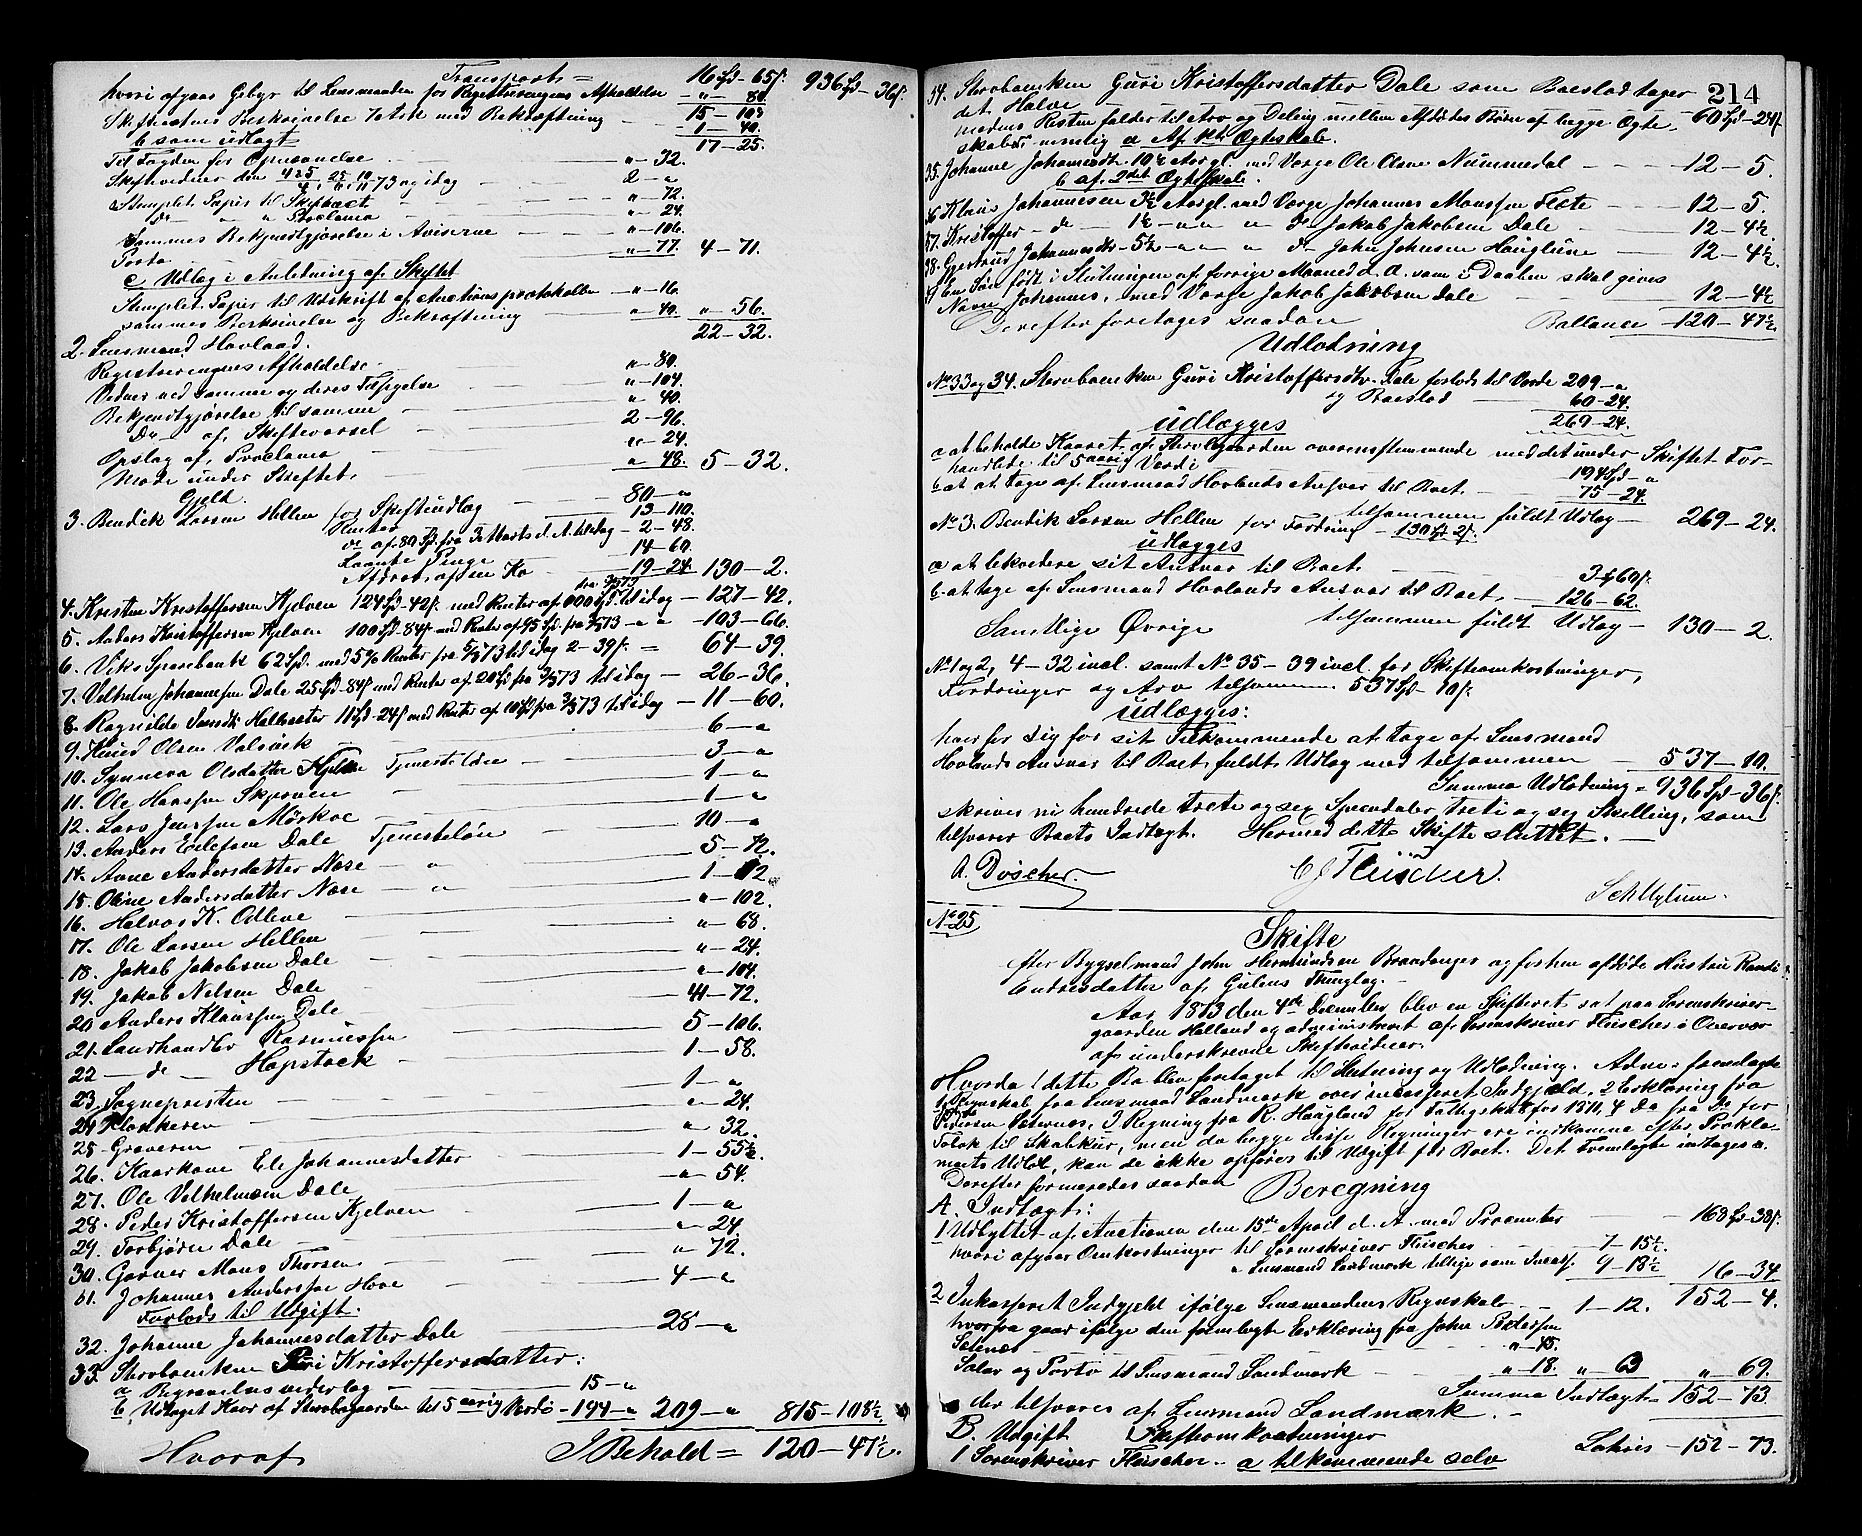 Transport = 16 Spd – 65 s. 936 Spd – 36 s.
hvori afgaar Gebyr til Lensmanden for Registreringens Afholdelse " – 80.
15 – 105
Skifterettens Beskrivelse 7 Ark med Bekræftning 1 – 40.
b som udlagt 17 – 25.
Til Fogden for Opnævnelse " – 32.
Skiftevidner den og idag 2 – "
Stemplet Papir til Skifteact " – 72.
do " " Proclama " – 24.
Sammes Bekjendtgjørelse i Aviserne " – 106.
Porto " – 77. 4 – 71.
c Udlæg i Anledning af Skiftet
Stemplet Papir til Udskrift af Auctionsprotokollen " – 16
sammes Beskrivelse og Bekræftning " – 40. " – 56.
22 – 32.
2. Lensmand Hovland.
Registreringens Afholdelse " – 80.
Vidner ved samme og deres Tilsigelse " – 104.
Bekjendtgjørelse til samme " – 40.
Do af Skiftevarsel 2 – 96.
Opslag af Proclama " – 24.
Møde under Skiftet " – 48. 5 – 32.
Gjeld.
3. Bendik Larsen Hellen for Skifteudlæg 80 – "
Renter 13 – 110.
do af 80 Spd. fra Marts d. A. til idag 2 – 48.
Laante Penge 14 – 60.
Afdrot af en Ko 19 – 24. 130 – 2.
4. Kristen Kristoffersen Kjelven 124 Spd – 42 s. med Renter af 100 Spd. til idag – 127 – 42.
5. Anders Kristoffersen Kjelven 100 Spd – 84 s. med Renter af 95 Spd. fra 73 – " " – 103 – 66.
6. Viks Sparebank 62 Spd. med 5 % Renter fra 73 til idag 2 – 39 s. = 64 – 39.
7. Vilhelm Johannesen Dale 25 Spd – 84 s. med Renter af 20 Spd fra 73 til idag – 26 – 36.
8. Ragnilde Hellesæter 11 Spd – 24 s. med Renter af 10 Spd fra 73 til idag – 11 – 60.
9. Knud Olsen Valsvik 6 – "
10. Synneva Olsdatter Tjenesteløn 3 – "
11. Ole Hansen Skjerven 1 – "
12. Lars Jensen Mörkve 1 – "
13. Anders Erlefsen Dale Tjenesteløn 10 – "
14. Anne Andersdatter Næse " 5 – 72.
15. Oline Andersdatter Næse " 1 – 12.
16. Helvog K. Odleve " – 102.
17. Ole Larsen Hellen " – 68.
18. Jakob Jakobsen Dale " – 24.
19. Jakob Nelsen Dale " – 104.
20 Anders Klausen Dale 41 – 72.
21. Landhandler Rasmussen 5 – 106.
22 – do – Hopstock 1 – 58.
23. Sognepresten 1 – "
24 Klokkeren " – 24.
25 Graveren " – 32.
26. Kaarkone Eli Johannesdatter 1 – 55½.
27. Ole Vilhelmsen Dale " – 54.
28. Peder Kristoffersen Kjelven 1 – "
29. Torbjørn Dale " – 24.
30. Garver Mons Thorsen " – 72.
31. Johannes Andersen Hove 4 – "
Forlods til Udgift.
32. Johanne Johannesdatter Dale 28 – "
33. Stervboenken Guri Kristoffersdatter:
a Begravelsesvederlag 15 – "
b Udtaget Kaar af Stervbogaarden til 5 aarig Værdi – 194 – " 209 – " 815 – 108½.
Hvoraf I Behold = 120 – 47½.
214
34. Stervboenken Guri Kristoffersdatter Dale som Boeslod tager
det Halve 60 Spd – 24 s.
medens Resten falder til Arv og Deling mellem Afdødes Børn af begge Ægte-
skaber nemlig a Af 1ste Ægteskab.
35. Johanne Johannesdtr. 10½ Aar gl. med Værge Ole Olsen Nummedal 12 – 5.
b af 2det Ægteskab.
36 Klaus Johannesen 3½ Aar gl. med Værge Johannes Monssen Flæte 12 – 5.
37. Kristoffer – do – 1½ – " " " do Jakob Jakobsen Dale 12 – 4½.
38. Gjertrud Johannesdtr – 5½ – " " " do John Johnsen Haugtun 12 – 4½.
39 En Søn født i Slutningen af forrige Maaned d. A. som i Daaben skal gives
Navn Johannes, med Værge Jakob Jakobsen Dale 12 – 4½
Derefter foretages saadan Ballance – 120 – 47½.
Udlodning
No 33 og 34. Stervboenken Guri Kristoffersdtr. Dale forlods til Værde 209 – "
og Boeslod 60 – 24.
269 – 24.
udlægges
a at beholde Kaaret af Stervbogaarden overensstemmende med det under Skiftet For-
handlede til 5 aarig Værdi 194 Spd – "
b at tage af Lensmand Hovlands Ansvar til Boet 75 – 24.
tilsammen fuldt Udlæg – 269 – 24.
No 3. Bendik Larsen Hellen for Fordring 130 Spd 2 s.
udlægges
a at likvidere sit Ansvar til Boet 3 Spd 60 s.
b at tage af Lensmand Hovlands Ansvar til Boet 126 – 62.
tilsammen fuldt Udlæg – 130 – 2.
Samtlige Øvrige
No 1 og 2, 4 – 32 incl. samt No 35 – 39 incl. for Skifteomkostninger,
Fordringer og Arv tilsammen 537 Spd – 10 s.
udlægges:
hver for sig for sit Tilkommende at tage af Lensmand
Hovlands Ansvar til Boet fuldt Udlæg med tilsammen 537 – 10.
Summa Udlodning = 936 Spd – 36 s.
skriver ni hundrede treti og sex Speciedaler, treti og sex Skilling, som
tilsvarer Boets Indtægt. Hermed dette Skifte sluttet. –
A. Döscher. C J Fleischer.
No 25
Skifte
efter Bygselmand John Hermundsen Brandanger og forhen afdøde Hustru Randi
Endresdatter af Gulens Thinglag. –
Aar 1873 den 4de December blev en Skifteret sat paa Sorenskriver-
gaarden Helland og administreret af Sorenskriver Fleischer i Overvær
af underskrevne Skiftevidner.
Hvorda! dette Bo blev foretaget til Slutning og Udlodning. Adm. fremlagde
1, Regnskab fra Lensmand Landmark over incasseret Indgjæld, 2 Erklæring fra
Pedersen Sætenes, 3 Regning fra R. Haugland for Fattigskat for 1871, 4 Do fra Do for
Tolok til Skabkur, men da begge disse Regninger ere indkomne efter Prokla-
maets Udløb, kan de ikke opføres til Udgift for Boet. Det Fremlagte indtages a.
Derefter formeredes saadan Beregning
A. Indtægt:
1 Udbyttet af Auctionen den 15de April d. A. med Procenter 168 Spd – 38 s.
hvori afgaar Omkostninger til Sorenskriver Fleischer 7 – 15½.
" Lensmand Landmark tillige som 9 – 18½ 16 – 34
152 – 4.
2 Inkasseret Indgjeld ifølge Lensmandens Regnskab 1 – 12.
hvorfra gaar ifølge den fremlagte Erklæring fra John Pedersen
Sætenes " – 45.
Salær og Porto til Lensmand Landmark " – 18. " 63 " – 69.
Summa Indtægt – 152 – 73.
der tilsvares af Lensmand Landmark.
B. Udgift Skifteomkostninger Latus – 152 – 73.
1 Sorenskriver Fleischer. – a tilkommende selv